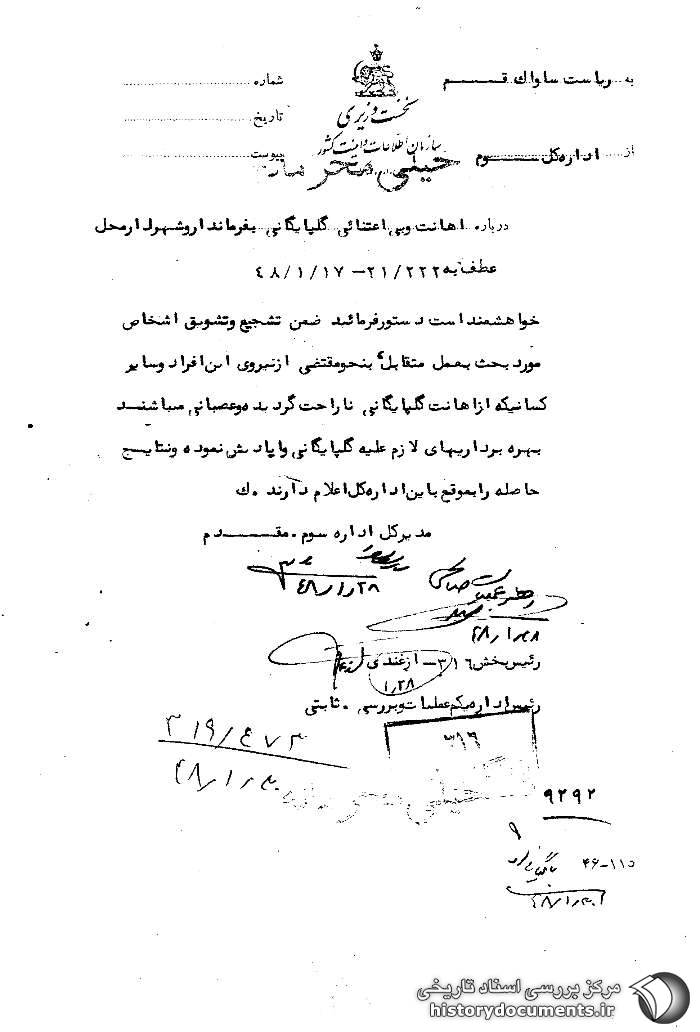 به ریاست ساواک قم
شماره
نخست وزیری
تاریخ
سازمان اطلاعات و امنیت کشور
از اداره کل سوم
پیوست
خیلی محرمانه
درباره اهانت وبی اعتنائی گلپایگانی بفرماندار وشهردار محل
عطف به ۲۱/۲۲۲ – ۴۸/۱/۱۷
خواهشمند است دستور فرمائید ضمن تشجیع وتشویق اشخاص
مورد بحث بعمل متقابل بنحو مقتضی از نیروی این افراد وسایر
کسانیکه از اهانت گلپایگانی ناراحت گردیده وعصبانی میباشند
بهره برداریهای لازم علیه گلپایگانی وایادیش نموده ونتایج
حاصله را بموقع باین اداره کل اعلام دارند. ک
مدیرکل اداره سوم. مقدم
۴۸/۱/۲۸
رهبر عملیات صالحی
۲۸/۱/۴۸
رئیس بخش ۳۱۶– ازغندی
۱/۲۸
رئیس اداره یکم عملیات وبررسی. ثابتی
۳۱۶
۳۱۹/۴۷۳
خیلی محرمانه
۹۲۹۲
۴۶-۱۱۵
مرکز بررسی اسناد تاریخی
historydocuments.ir